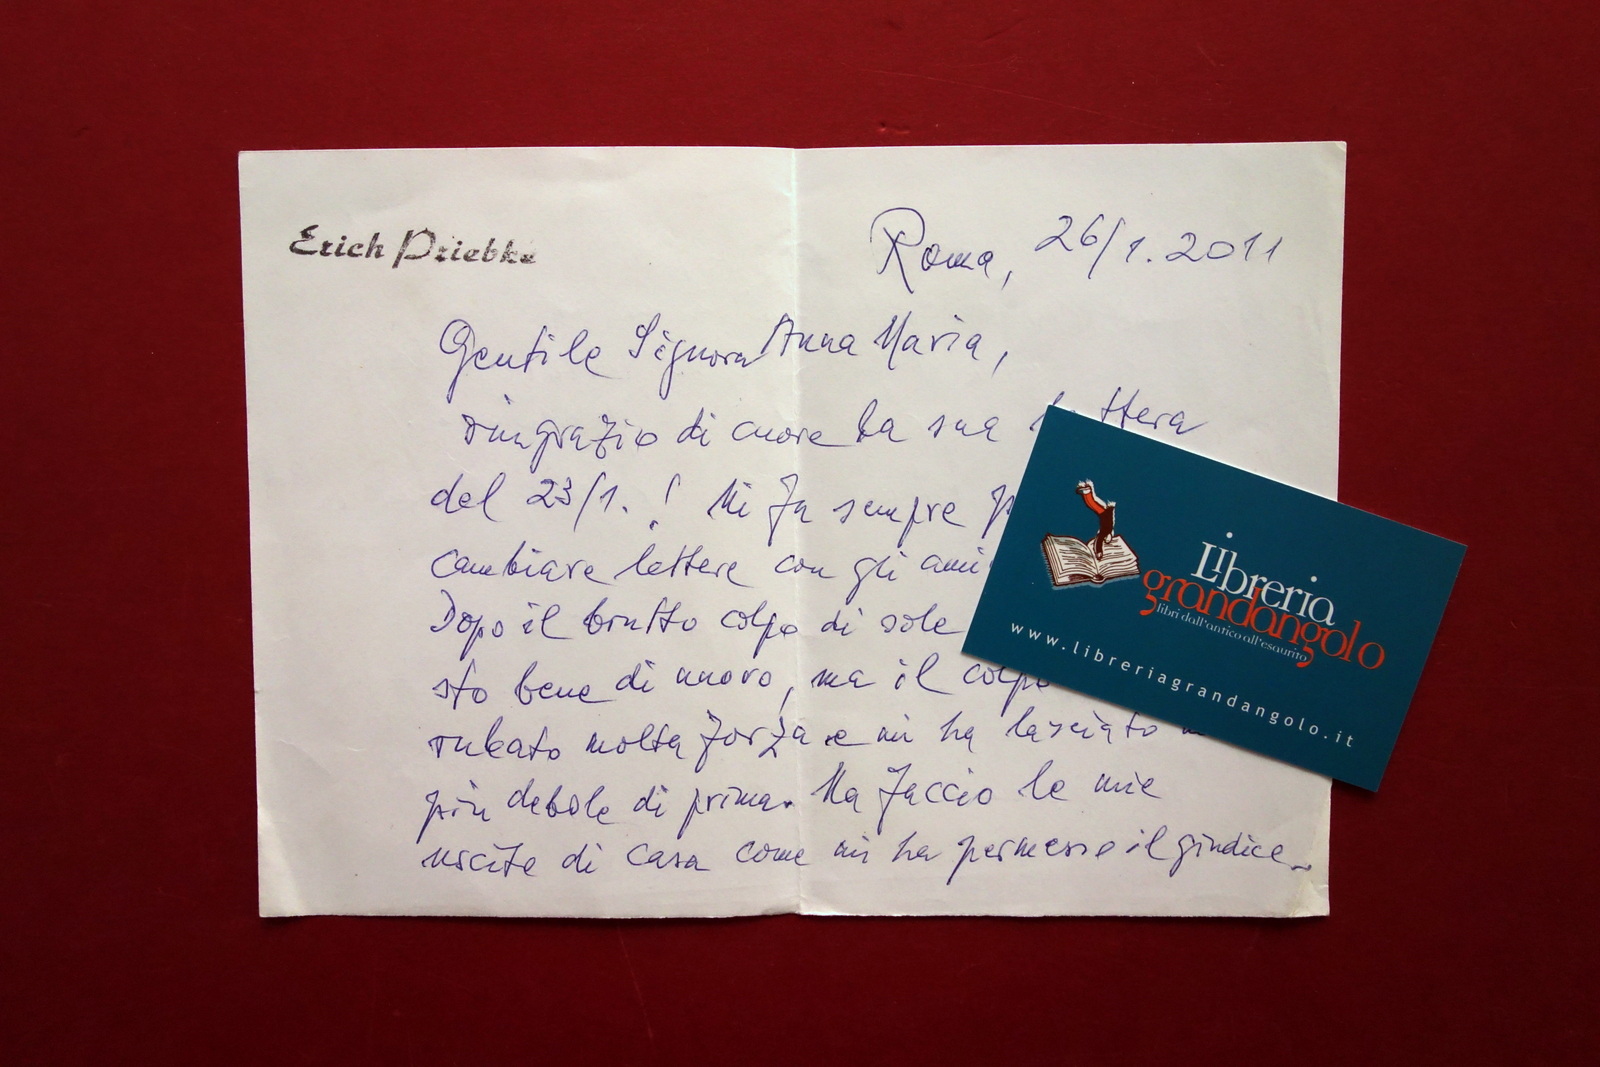 Erich Priebke
Roma, 26/1.2011
Gentile Signora Anna Maria,
ringrazio di cuore la sua lettera
del 23/1.! Mi fa sempre
cambiare lettere con gli ami
Dopo il brutto colpo di sole
sto bene di nuovo, ma il colpo
rubato molta forza e mi ha lasciato
più debole di prima. Ma faccio le mie
uscite di casa come mi ha permesso il giudice.
Libreria
grandangolo
libri dall'antico all'esaurito
www.libreriagrandangolo.it